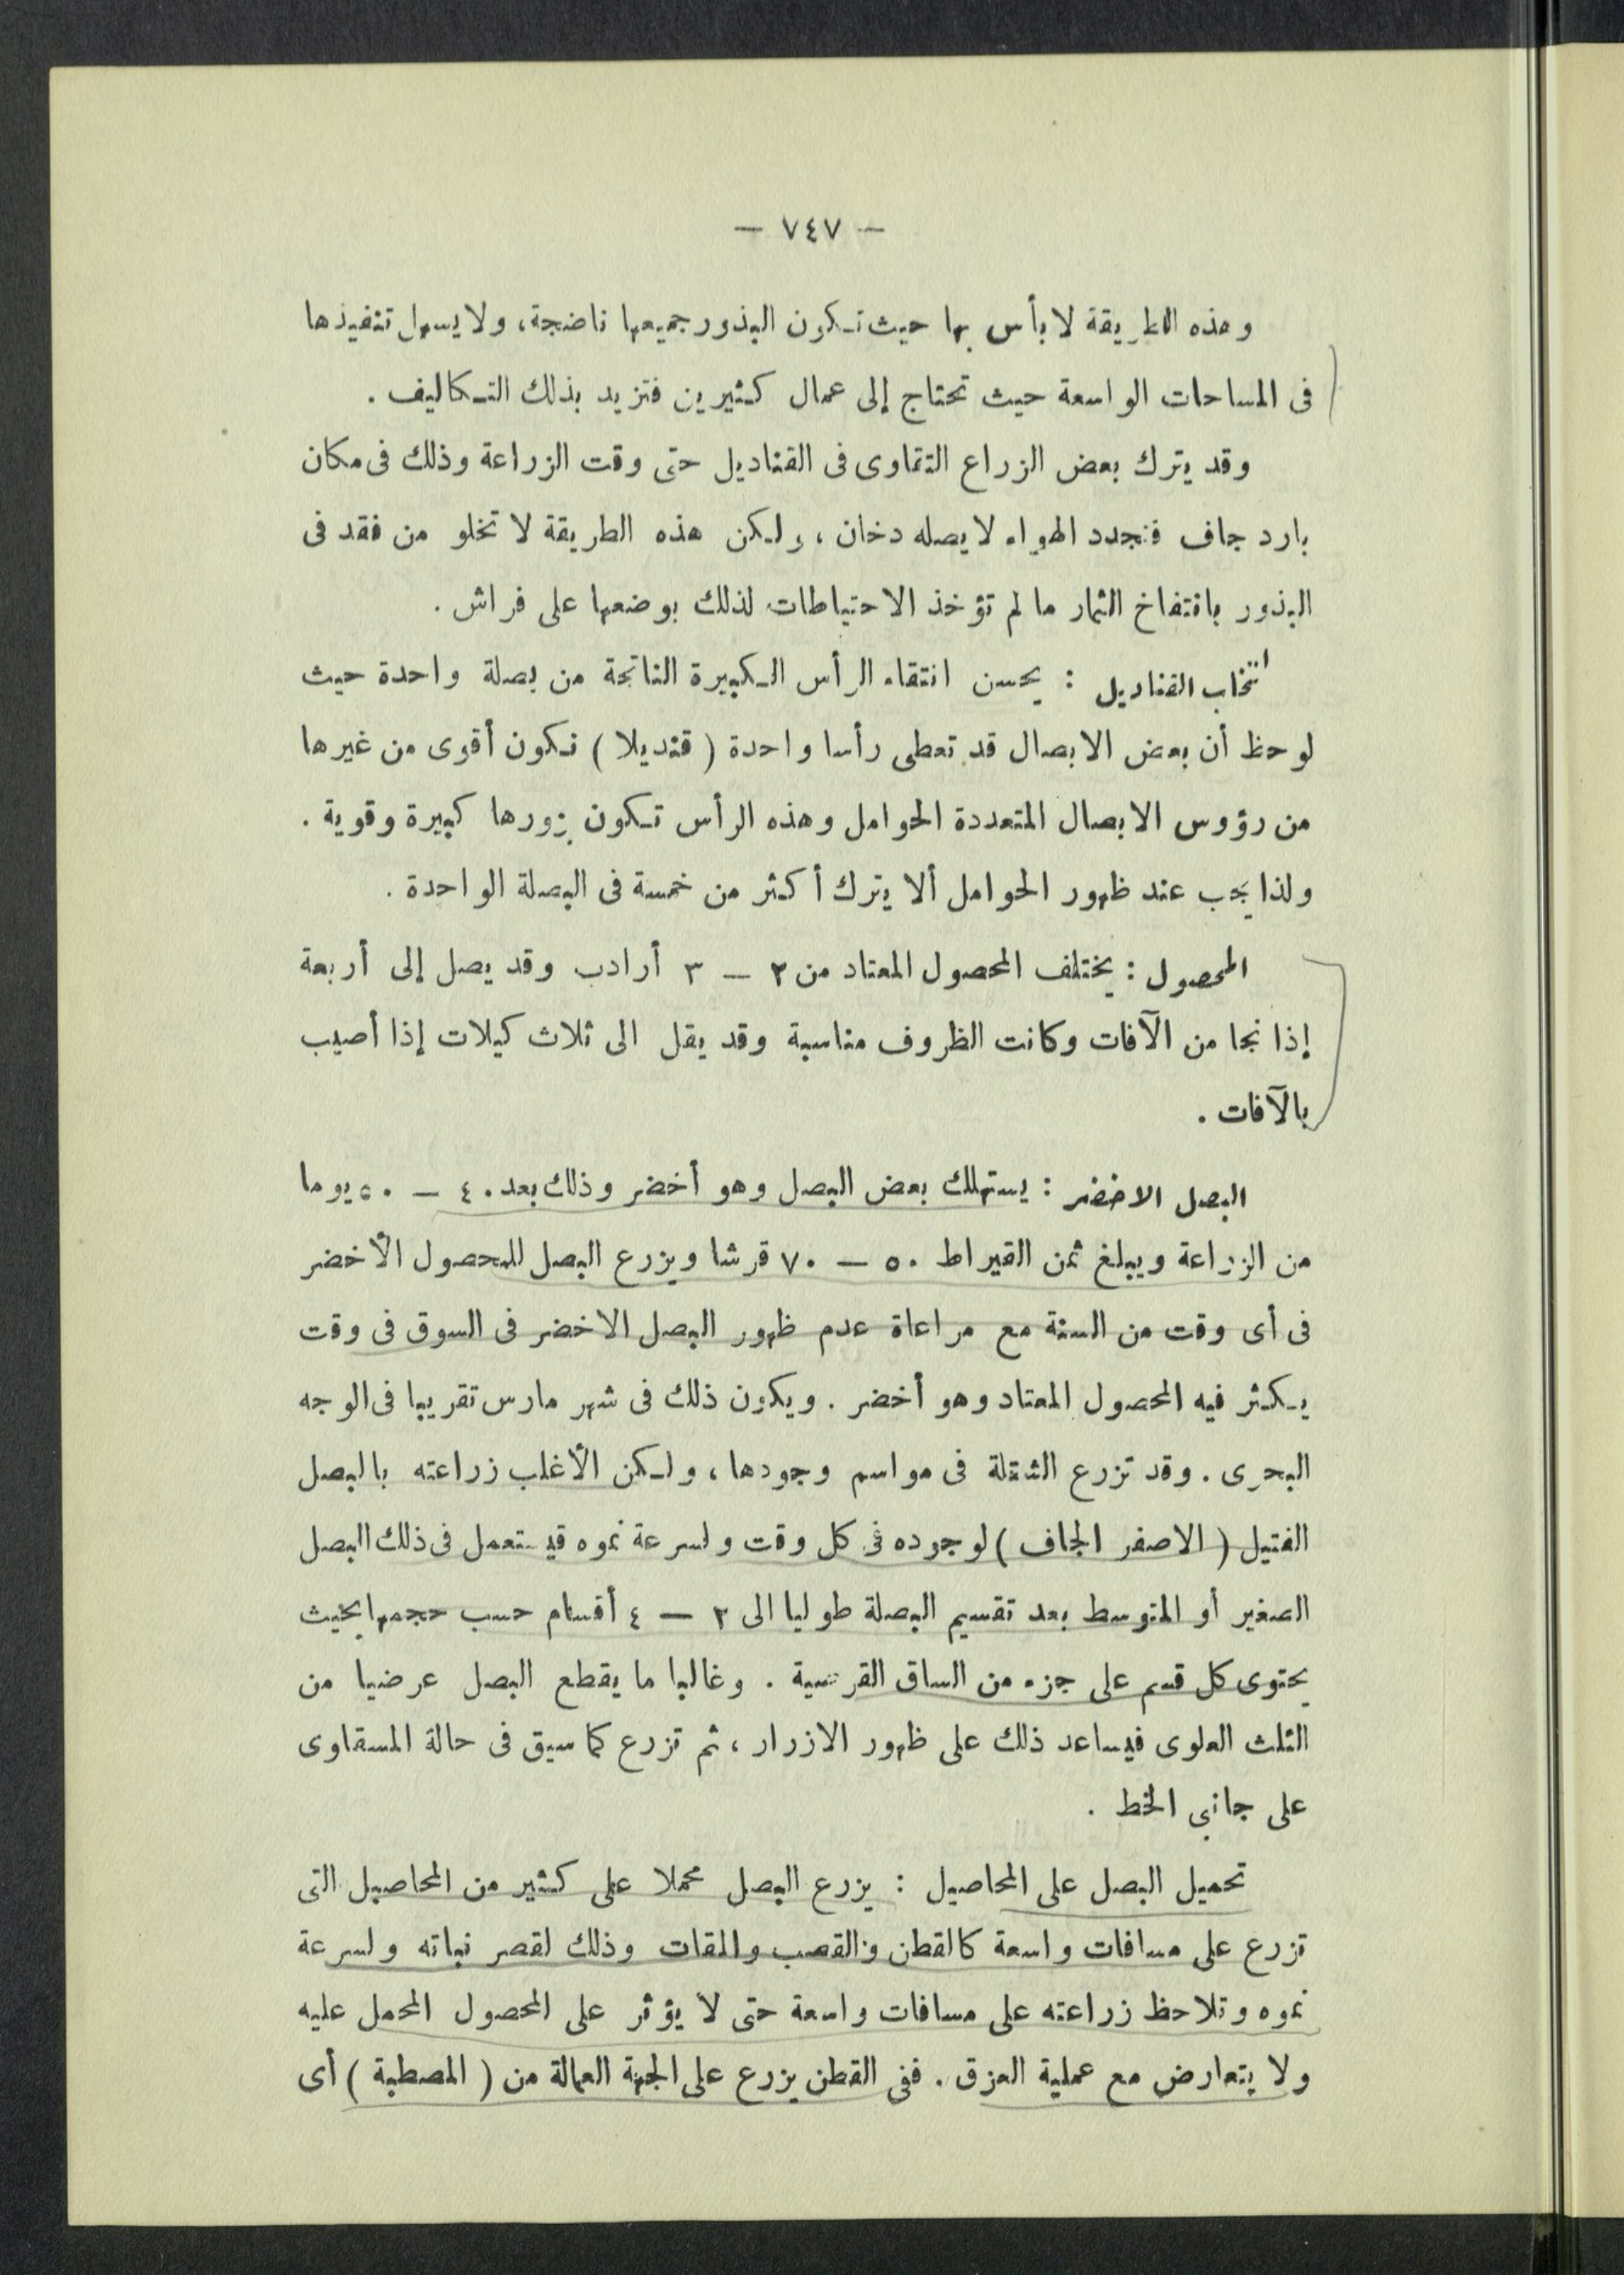 — ٧٤٧ —
وهذه الطريقة لا بأس بها حيث تكون البذور جميعها ناضجة، ولا يسهل تنفيذها
فى المساحات الواسعة حيث تحتاج إلى عمال كثيرين فتزيد بذلك التكاليف .
وقد يترك بعض الزراع التقاوى فى القناديل حتى وقت الزراعة وذلك فى مكان
بارد جاف متجدد الهواء لا يصله دخان ، ولكن هذه الطريقة لا تخلو من فقد فى
البذور بانتفاخ الثمار ما لم تؤخذ الاحتياطات لذلك بوضعها على فراش .
انتخاب القناديل : يحسن انتقاء الرأس الكبيرة الناتجة من بصلة واحدة حيث
لوحظ أن بعض الابصال قد تعطى رأسا واحدة ( قنديلا ) تكون أقوى من غيرها
من رؤوس الابصال المتعددة الحوامل وهذه الرأس تكون بزورها كبيرة وقوية .
ولذا يجب عند ظهور الحوامل ألا يترك أكثر من خمسة فى البصلة الواحدة .
المحصول : يختلف المحصول المعتاد من ٢ — ٣ أرادب وقد يصل إلى أربعة
إذا نجا من الآفات وكانت الظروف مناسبة وقد يقل الى ثلاث كيلات إذا أصيب
بالآفات .
البصل الاخضر : يستهلك بعض البصل وهو أخضر وذلك بعد ٤٠ — ٥٠ يوما
من الزراعة ويبلغ ثمن القيراط ٥٠ — ٧٠ قرشا ويزرع البصل للمحصول الأخضر
فى أى وقت من السنة مع مراعاة عدم ظهور البصل الاخضر فى السوق فى وقت
يكثر فيه المحصول المعتاد وهو أخضر . ويكون ذلك فى شهر مارس تقريبا فى الوجه
البحرى . وقد تزرع الشتلة فى مواسم وجودها ، ولكن الأغلب زراعته بالبصل
الفتيل ( الاصفر الجاف ) لوجوده فى كل وقت ولسرعة نموه قيستعمل فى ذلك البصل
الصغير أو المتوسط بعد تقسيم البصلة طوليا الى ٢ — ٤ أقسام حسب حجمها بحيث
يحتوى كل قسم على جزء من الساق القرصية . وغالبا ما يقطع البصل عرضيا من
الثلث العلوى فيساعد ذلك على ظهور الازرار ، ثم تزرع كما سبق فى حالة المسقاوى
على جانبى الخط .
تحميل البصل على المحاصيل : يزرع البصل محملا على كثير من المحاصيل التى
تزرع على مسافات واسعة كالقطن والقصب والمقات وذلك لقصر نباته ولسرعة
نموه وتلاحظ زراعته على مسافات واسعة حتى لا يؤثر على المحصول المحمل عليه
ولا يتعارض مع عملية العزق . ففى القطن يزرع على الجهة العمالة من ( المصطبة ) أى